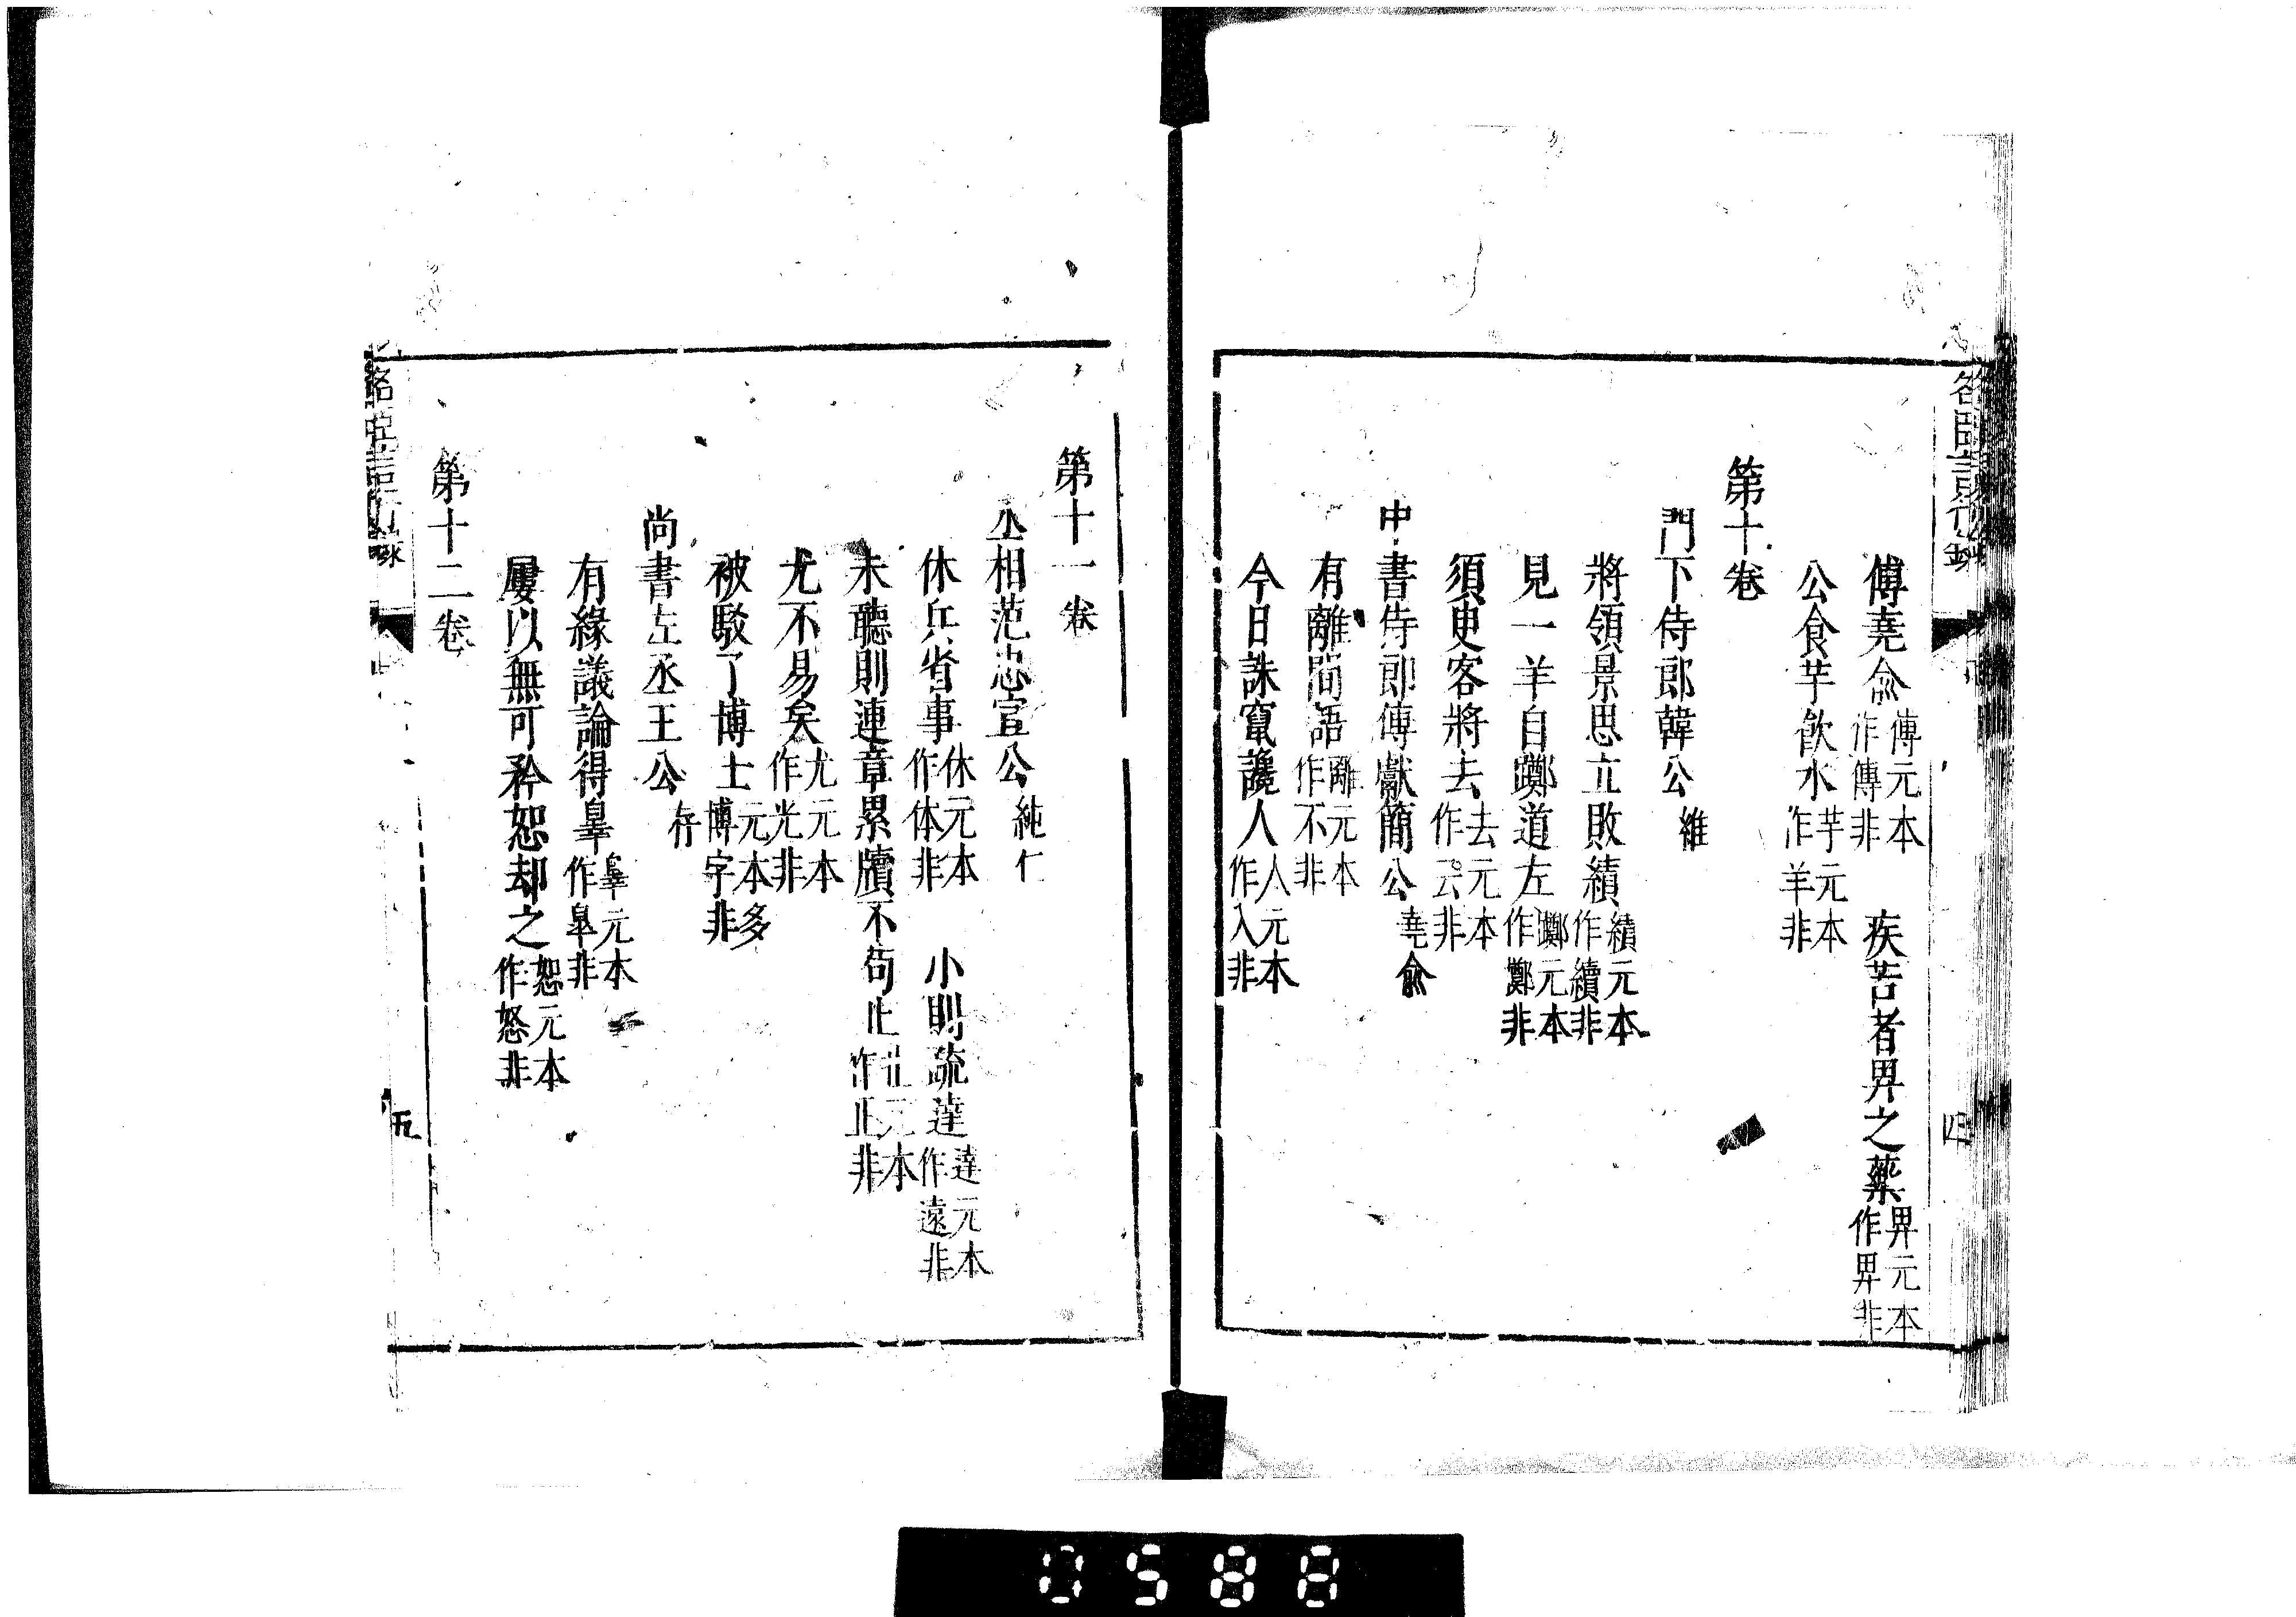 傅堯俞傅元本作傳非　疾苦者畀之藥畀元本作畀非
公食芋飲水芋元本作羊非
第十卷
門下侍郎韓公維
將領景思立敗績績元本作續非
見一羊自擲道左擲元本作鄭非
須臾客將去去元本作云非
中書侍郎傅獻簡公堯俞
有離間語離元本作不非
今日誅竄讒人人元本作入非
四
第十一卷
丞相范忠宣公純仁
休兵省事休元本作体非　小則疏達達元本作遠非
未聽則連章累牘不苟止止元本作止非
尤不易矣尤元本作光非
被駁了博士元本多博字非
尚書左丞王公存
有緣議論得辠辠元本作皐非
屢以無可矜恕却之恕元本作怒非
第十二卷
五
0588